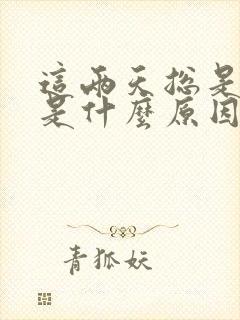 這兩天總是
是什麼原因
青狐妖